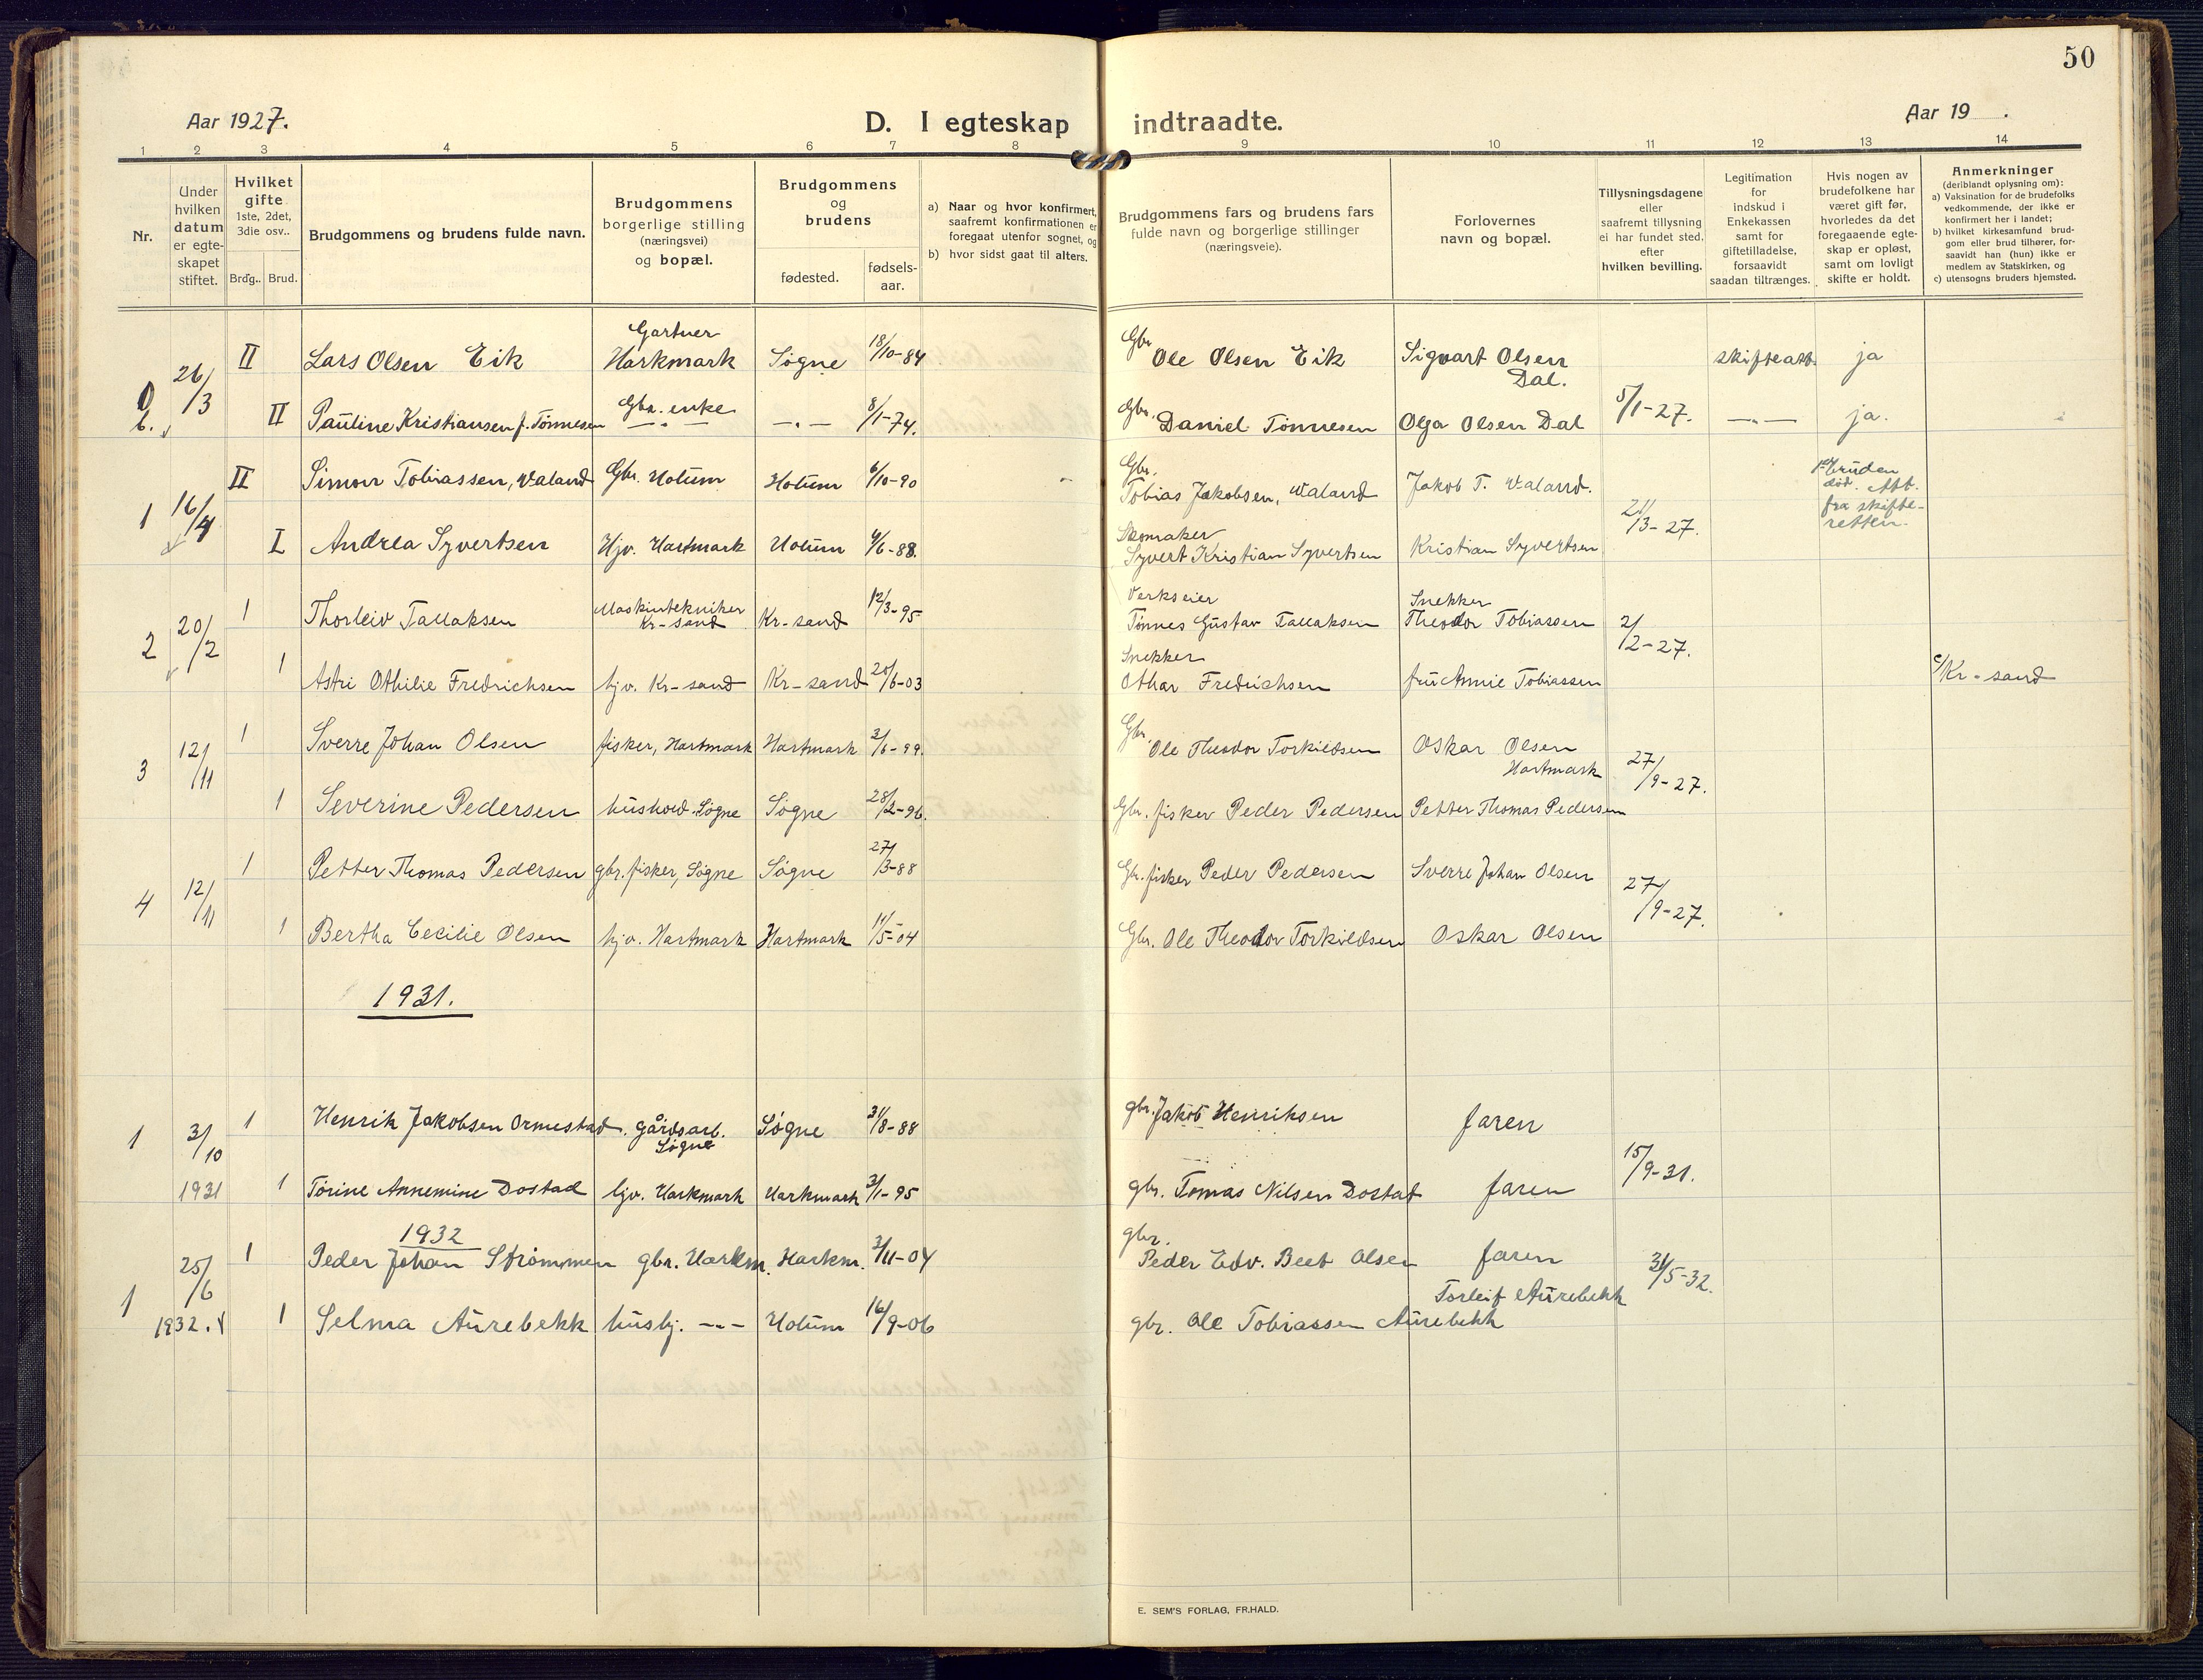 50
Aar 1927.
D. I egteskap indtraadte.
Aar 19 .
1 2 3 4 5 6 7 8 9 10 11 12 13 14
Nr.
Under hvilken datum er egte-skapet stiftet.
Hvilket gifte 1ste, 2det, 3die osv..
Brdg.. Brud.
Brudgommens og brudens fulde navn.
Brudgommens borgerlige stilling (næringsvei) og bopæl.
Brudgommens og brudens
fødested. fødsels-aar.
a) Naar og hvor konfirmert, saafremt konfirmationen er foregaat utenfor sognet, og
b) hvor sidst gaat til alters.
Brudgommens fars og brudens fars fulde navn og borgerlige stillinger (næringsveie).
Forlovernes navn og bopæl.
Tillysningsdagene eller saafremt tillysning ei har fundet sted. efter hvilken bevilling.
Legitimation for indskud i Enkekassen samt for giftetilladelse, forsaavidt saadan tiltrænges.
Hvis nogen av brudefolkene har været gift før, hvorledes da det foregaaende egte-skap er opløst, samt om lovligt skifte er holdt.
Anmerkninger (deriblandt oplysning om):
a) Vaksination for de brudefolks vedkommende, der ikke er konfirmert her i landet;
b) hvilket kirkesamfund brud-gom eller brud tilhører, for-saavidt han (hun) ikke er medlem av Statskirken, og
c) utensogns bruders hjemsted.
26/3 II Lars Olsen Eik Gartner Harkmark Søgne 18/10-84 Gbr Ole Olsen Eik Sigvart Olsen Dal. skifteatt. ja
II Pauline Kristiansen f. Tønnesen Gbr. enke —"— —"— 8/1-74. Gbr. Daniel Tønnesen Olga Olsen Dal 5/1-27. —"— ja.
1 16/4 II Simon Tobiassen, Valand Gbr. Holum Holum 6/10-90 Gbr. Tobias Jakobsen, Valand Jakob T. Valand. 21/3-27. bruden død. Att. fra skifte-retten.
I Andrea Syvertsen Hjv. Hartmark Holum 4/6-88. Skomaker Syvert Kristian Syvertsen Kristian Syvertsen
2 20/2 1 Thorleiv Tallaksen Maskintekniker Kr-sand Kr-sand 12/3-95 Verkseier Tønnes Gustav Tallaksen Snekker Theodor Tobiassen 2/2-27.
1 Astri Othilie Fredrichsen hjv. Kr-sand Kr-sand 20/6-03 Snekker Othar Fredrichsen fru Annie Tobiassen c/ Kr-sand
3 12/11 1 Sverre Johan Olsen fisker, Hartmark Hartmark 2/6-99. Gbr. Ole Theodor Torkildsen Oskar Olsen Hartmark 27/9-27.
1 Severine Pedersen hushold. Søgne Søgne 28/2-96. Gbr. fisker Peder Pedersen Petter Thomas Pedersen
4 12/11 1 Petter Thomas Pedersen gbr. fisker, Søgne Søgne 27/3-88 Gbr. fisker Peder Pedersen Sverre Johan Olsen 27/9-27.
1 Bertha Cecilie Olsen hjv. Hartmark Hartmark 11/5-04 Gbr. Ole Theodor Torkildsen Oskar Olsen
1931.
1 3/10 1931 1 Henrik Jakobsen Ormestad. gårdsarb. Søgne Søgne 31/8-88 gbr. Jakob Henriksen faren 15/9-31.
1 Torine Annemine Dostad hjv. Harkmark Harkmark 3/1-95 gbr. Tomas Nilsen Dostad faren
1932
1 25/6 1932. 1 Peder Johan Strømmen gbr. Harkm. Harkm. 3/11-04 gbr. Peder Edv. Olsen faren 31/5-32.
1 Selma Aurebekk hushj. —"— Holum 16/9-06 gbr. Ole Tobiassen Aurebekk Torleif Aurebekk
E. SEM'S FORLAG, FR.HALD.